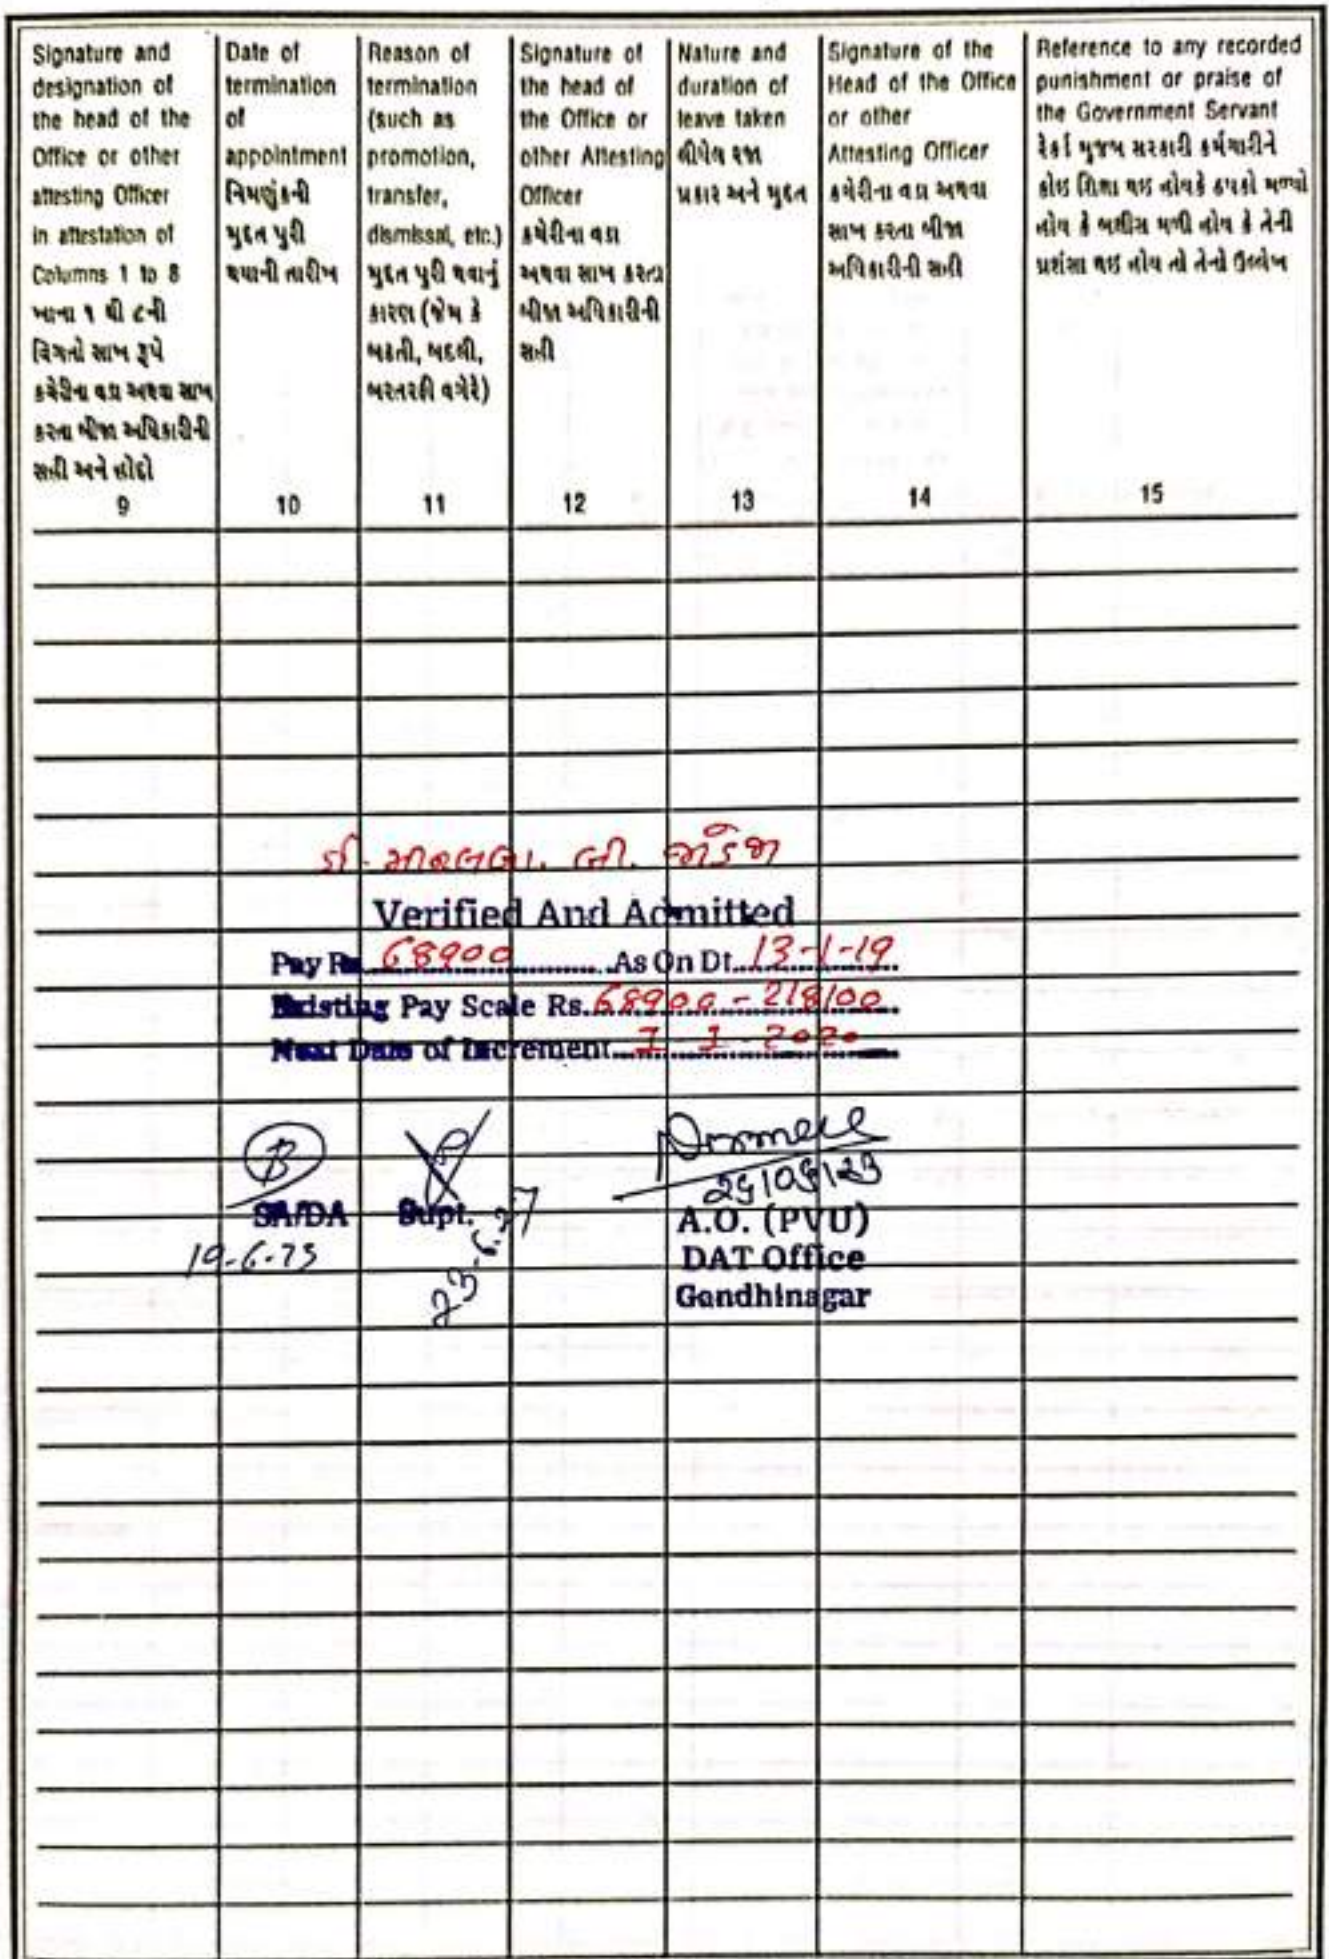 Signature and
designation of
the head of the
Office or other
attesting Officer
in attestation of
Columns 1 to 8
ખાના ૧ થી ૮ની
વિગતો સાખ રૂપે
કચેરીના વડા અથવા સાખ
કરતા બીજા અધિકારીની
સહી અને હોદ્દો
9
Date of
termination
of
appointment
નિમણુંકની
મુદત પુરી
થયાની તારીખ
10
Reason of
termination
(such as
promotion,
transfer,
dismissal, etc.)
મુદત પુરી થવાનું
કારણ (જેમ કે
બઢતી, બદલી,
બરતરફી વગેરે)
11
Signature of
the head of
the Office or
other Attesting
Officer
કચેરીના વડા
અથવા સાખ કરતા
બીજા અધિકારીની
સહી
12
Nature and
duration of
leave taken
લીધેલ રજા
પ્રકાર અને મુદત
13
Signature of the
Head of the Office
or other
Attesting Officer
કચેરીના વડા અથવા
સાખ કરતા બીજા
અધિકારીની સહી
14
Reference to any recorded
punishment or praise of
the Government Servant
રેકર્ડ મુજબ સરકારી કર્મચારીને
કોઇ શિક્ષા થઇ હોયકે ઠપકો મળ્યો
હોય કે બક્ષીસ મળી હોય કે તેની
પ્રશંસા થઇ હોય તો તેનો ઉલ્લેખ
15
Verified And Admitted
Pay Rs 68900 As On Dt. 13-1-19
Existing Pay Scale Rs. 68900-218100
Next Date of Increment 1-1-2020
SA/DA
Supt.
A.O. (PVU)
DAT Office
Gandhinagar